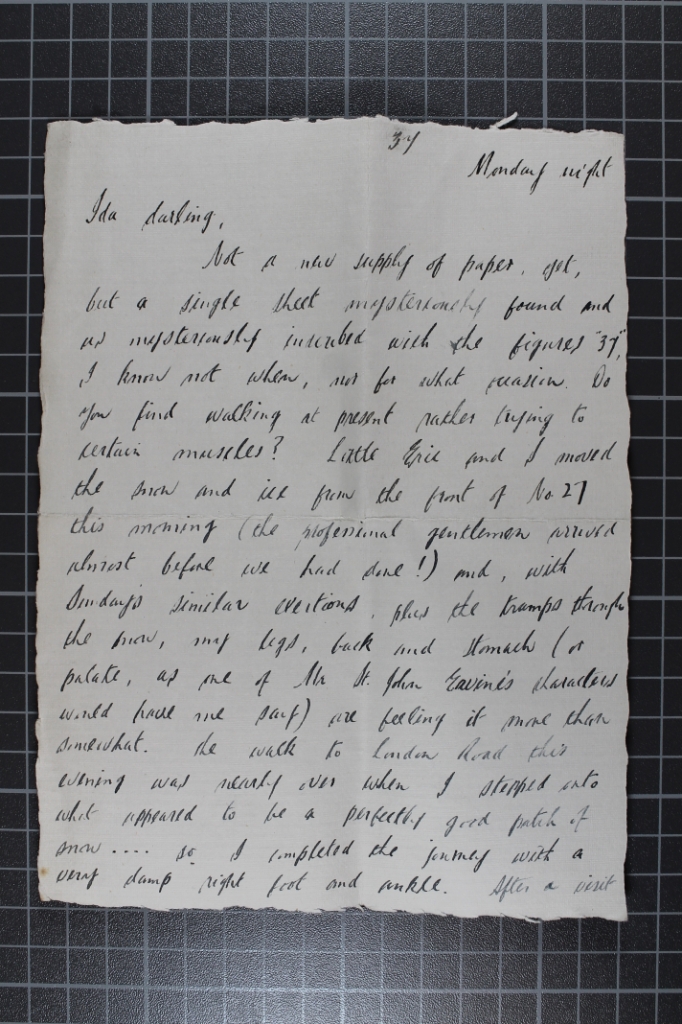 37
Monday night
Ida darling,
Not a new supply of paper, yet,
but a single sheet mysteriously found and
as mysteriously inscribed with the figures "37",
I know not when, nor for what occasion. Do
you find walking at present rather trying to
certain muscles? Little Eric and I moved
the snow and ice from the front of No. 27
this morning (the professional gentlemen arrived
almost before we had done!) and, with
Sunday's similar exertions, plus the tramps through
the snow, my legs, back and stomach (or
palate, as one of Mr St. John Ervine's characters
would have me say) are feeling it more than
somewhat. The walk to London Road this
evening was nearly over when I stepped into
what appeared to be a perfectly good patch of
snow.... so I completed the journey with a
very damp right foot and ankle. After a visit